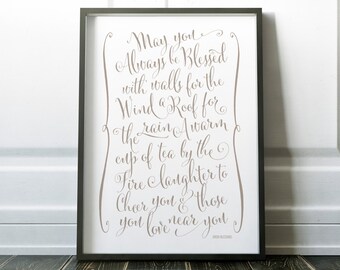 May you
Always be Blessed
with walls for the
Wind a Roof for
the rain A warm
cup of tea by the
Fire Laughter to
Cheer you & those
you love near you